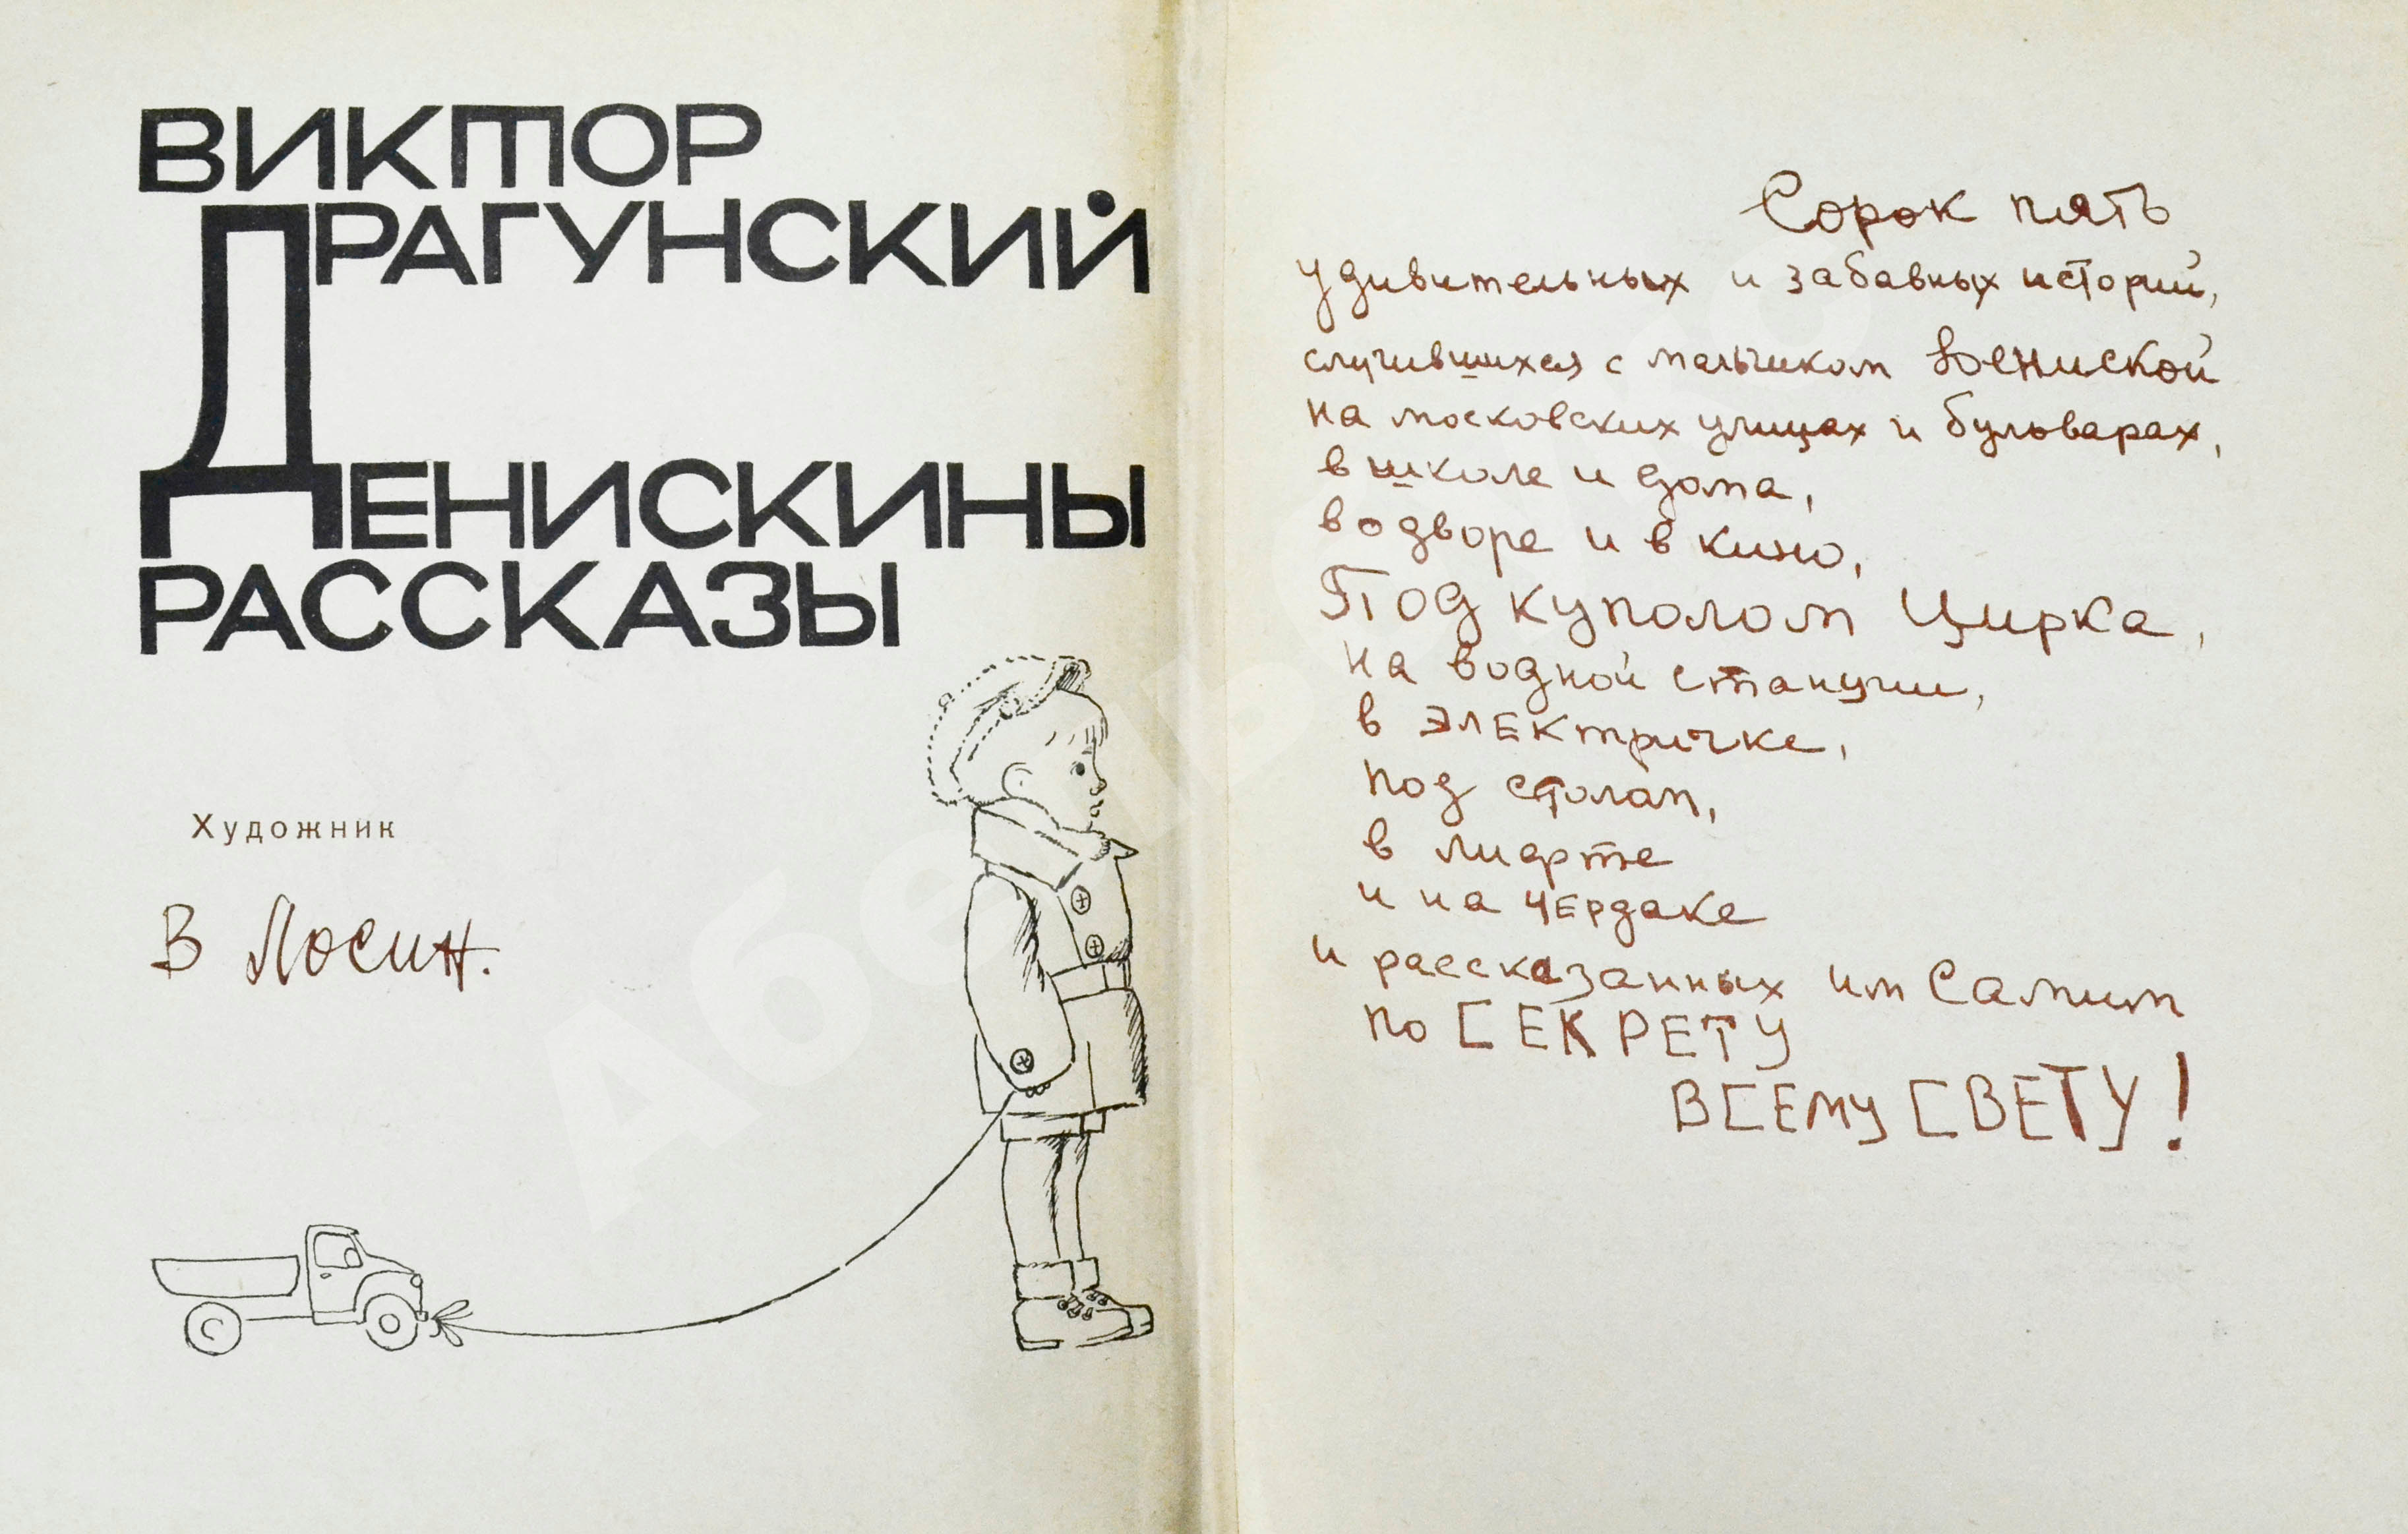 ВИКТОР
ДРАГУНСКИЙ
ДЕНИСКИНЫ
РАССКАЗЫ
Художник
В Лосин.
Сорок пять
удивительных и забавных историй,
случившихся с мальчиком Дениской
на московских улицах и бульварах,
в школе и дома,
во дворе и в кино,
Под куполом цирка,
на водной станции,
в электричке,
под столом,
в лифте
и на чердаке
и рассказанных им Самим
по СЕКРЕТУ
ВСЕМУ СВЕТУ!